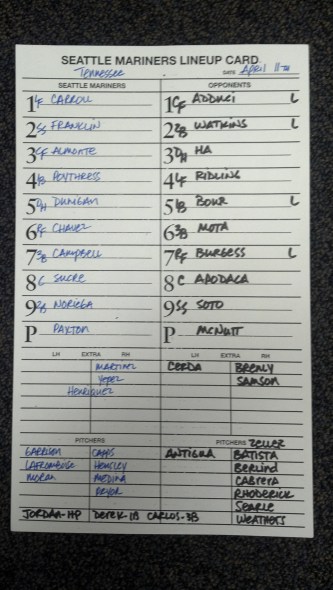 SEATTLE MARINERS LINEUP CARD
Tennessee DATE April 11TH
SEATTLE MARINERS OPPONENTS
1 LF CARROLL 1 CF ADDUCI L
2 SS FRANKLIN 2 2B WATKINS L
3 CF ALMONTE 3 DH HA
4 1B POYTHRESS 4 LF RIDLING
5 DH DUNIGAN 5 1B BOUR L
6 RF CHAVEZ 6 3B MOTA
7 3B CAMPBELL 7 RF BURGESS L
8 C SUCRE 8 C APODACA
9 2B NORIEGA 9 SS SOTO
P PAXTON P MCNUTT
LH EXTRA RH LH EXTRA RH
MARTINEZ CERDA BRENLY
YEPEZ SAMSON
HENRIQUEZ
PITCHERS PITCHERS ZELLER
GARRISON CAPPS ANTIGUA BATISTA
LAFROMBOISE HENSLEY BERLIND
MORAN MEDINA CABRERA
PRYOR RHODERICK
SEARLE
JORDAN-HP DEREK-1B CARLOS-3B WEATHERS